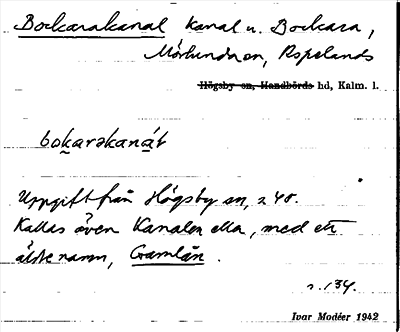 Bockarakanal kanal v. Bockara,
Mörlunda sn, Aspelands
Högsby sn, Handbörds hd, Kalm. l.
bokarakanát
Uppgift från Högsby sn, s 40.
Kallas även Kanalen ella, med ett
äldre namn, Gramlån.
s. 134.
Ivar Modéer 1942